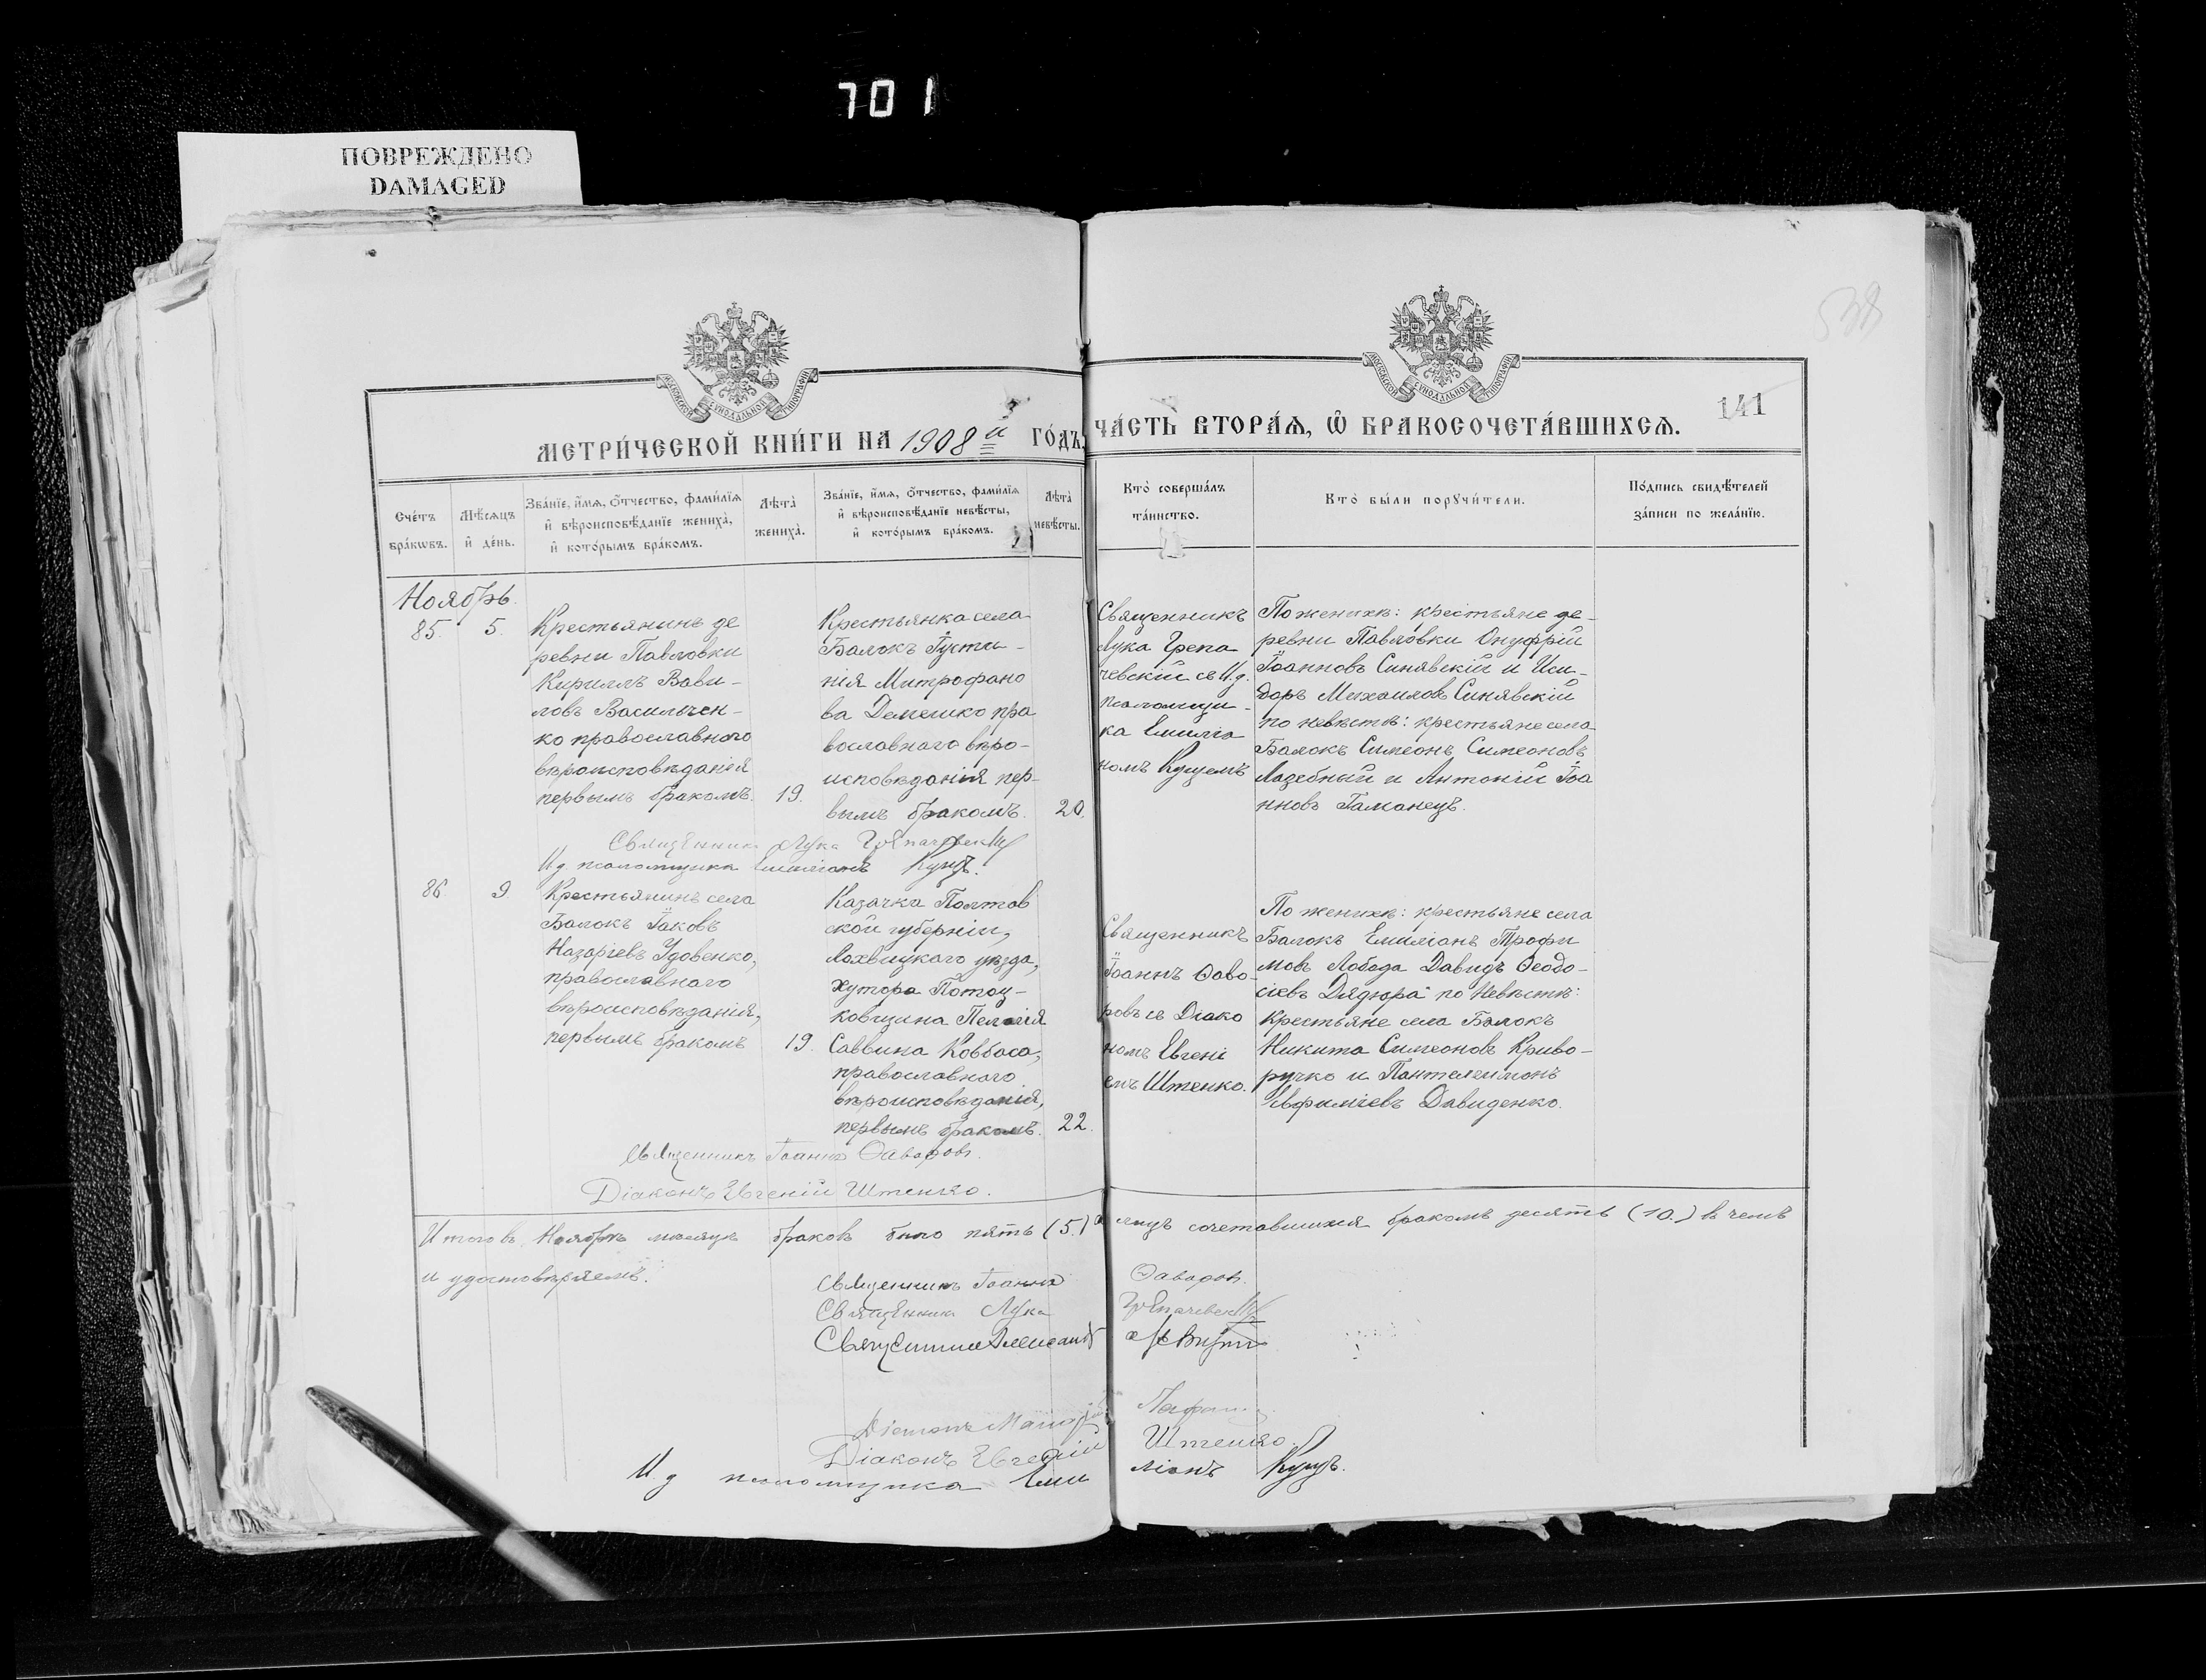 701
ПОВРЕЖДЕНО
DAMAGED
538
141
МЕТРИ́ЧЕСКОЙ КНИ́ГИ НА 1908 й ГО́ДЪ, ЧА́СТЬ ВТОРА́Ѧ, Ѽ БРАКОСОЧЕТА́ВШИХСѦ.
Сче́тъ бра́кѡвъ.
Мѣ́сѧцъ и҆ де́нь.
Зва́нїе, и҆́мѧ, ѻ҆́тчество, фами́лїѧ и҆ вѣроисповѣ́данїе жениха̀, и҆ кото́рымъ бра́комъ.
Лѣта̀ жениха̀.
Зва́нїе, и҆́мѧ, ѻ҆́тчество, фами́лїѧ и҆ вѣроисповѣ́данїе невѣ́сты, и҆ кото́рымъ бра́комъ.
Лѣта̀ невѣ́сты.
Кто̀ соверша́лъ та́инство.
Кто̀ бы́ли порꙋчи́тели.
По́дпись свидѣ́телей за́писи по жела́нїю.
Ноябрь.
85. 5.
Крестьянинъ де
ревни Павловки
Кириллъ Вави-
ловъ Васильчен-
ко православнаго
вѣроисповѣданія
первымъ бракомъ. 19.
Крестьянка села
Балокъ Іусти-
нія Митрофано
ва Демешко пра
вославнаго вѣро-
исповѣданія пер-
вымъ бракомъ. 20.
Священникъ
Лука Грепа
чевскій съ И.д.
псаломщи-
ка Емиліа
номъ Куцемъ
По женихѣ: крестьяне де-
ревни Павловки Онуфрій
Іоанновъ Синявскій и Иси-
доръ Михаиловъ Синявскій
по невѣстѣ: крестьяне села
Балокъ Симеонъ Симеоновъ
Лазебный и Антоній Іоа
нновъ Гаманецъ.
Священникъ Лука Грепачевскій
И.д. псаломщика Емиліанъ Куцъ.
86 9
Крестьянинъ села
Балокъ Іаковъ
Назаріевъ Удовенко,
православнаго
вѣроисповѣданія,
первымъ бракомъ 19.
Казачка Полтав
ской губерніи,
Лохвицкаго уѣзда,
хутора Потоц-
ковщина Пелагія
Саввина Ковбаса,
православнаго
вѣроисповѣданія,
первымъ бракомъ. 22.
Священникъ
Іоаннъ Ѳаво-
ровъ съ Діако
номъ Евгені
емъ Штепко.
По женихѣ: крестьяне села
Балокъ Емиліанъ Трофи
мовъ Лобода Давидъ Ѳеодо-
сіевъ Дядюра по невѣстѣ:
крестьяне села Балокъ
Никита Симеоновъ Криво-
ручко и Пантелеимонъ
Евфиміевъ Давиденко.
Священникъ Іоаннъ Ѳаворовъ.
Діаконъ Евгеній Штепко.
Итого въ Ноябрѣ мѣсяцѣ браковъ было пять (5.) а лицъ сочетавшихся бракомъ десять (10.) въ чемъ
и удостовѣряемъ.
Священникъ Іоаннъ Ѳаворовъ.
Священникъ Лука Грепачевскій
Священникъ Александръ
Діаконъ
Діаконъ Евгеній Штепко.
И.д псаломщика Емиліанъ Куцъ.